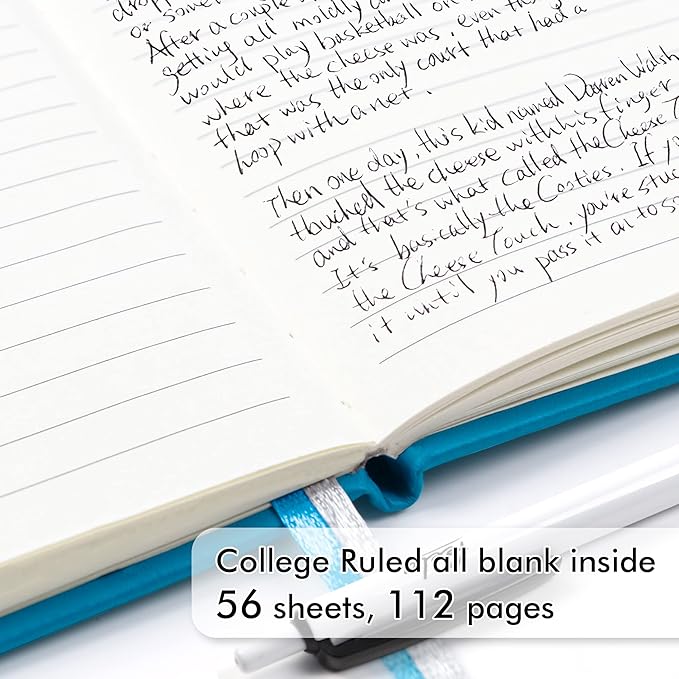 dropp
or some
After a couple
getting all moldy a
would play basketball on
where the cheese was, even tho
that was the only court that had a
hoop with a net.
Then one day, this kid named Darren Walsh
touched the cheese with his finger
and that's what called the Cheese T
It's basically the Cooties. If y
the Cheese Touch, you're stuc
it until you pass it on to so
College Ruled all blank inside
56 sheets, 112 pages